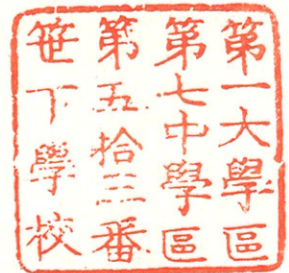 第一大學區
第七中學區
第五拾三番
笹下學校